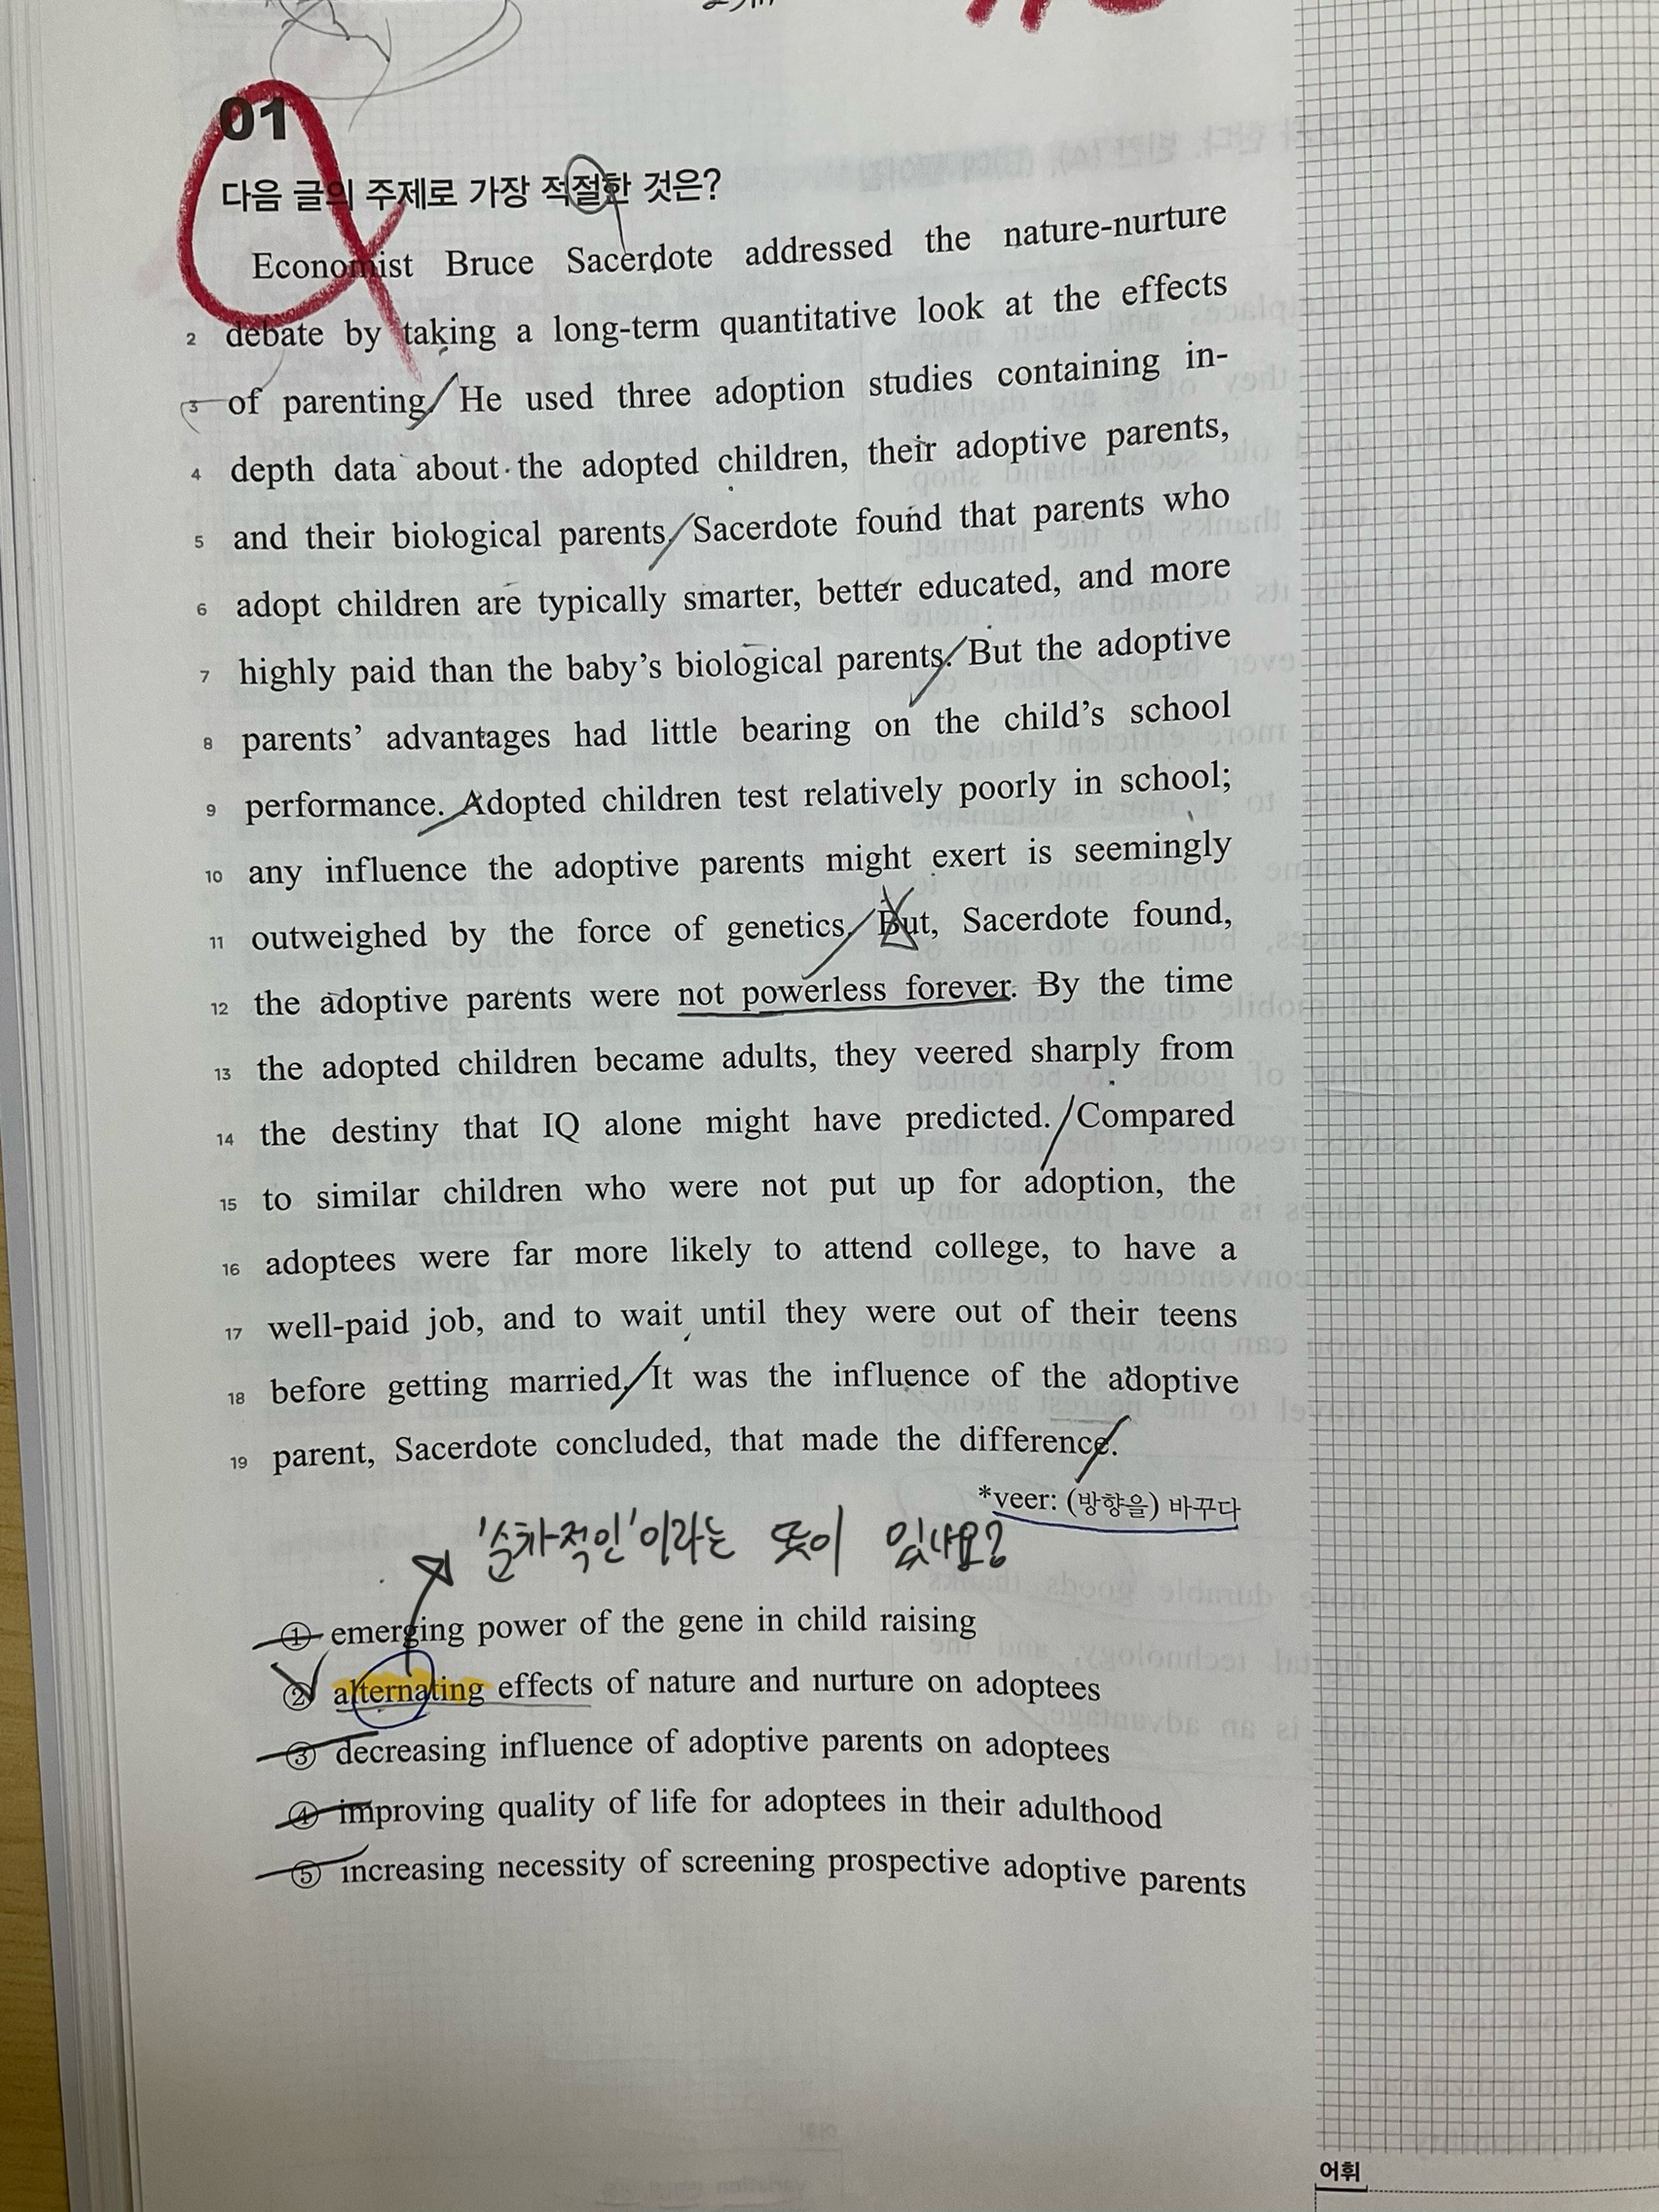 01
다음 글의 주제로 가장 적절한 것은?
Economist Bruce Sacerdote addressed the nature-nurture
2 debate by taking a long-term quantitative look at the effects
3 of parenting. He used three adoption studies containing in-
4 depth data about the adopted children, their adoptive parents,
5 and their biological parents. Sacerdote found that parents who
6 adopt children are typically smarter, better educated, and more
7 highly paid than the baby's biological parents. But the adoptive
8 parents' advantages had little bearing on the child's school
9 performance. Adopted children test relatively poorly in school;
10 any influence the adoptive parents might exert is seemingly
11 outweighed by the force of genetics. But, Sacerdote found,
12 the adoptive parents were not powerless forever. By the time
13 the adopted children became adults, they veered sharply from
14 the destiny that IQ alone might have predicted. Compared
15 to similar children who were not put up for adoption, the
16 adoptees were far more likely to attend college, to have a
17 well-paid job, and to wait until they were out of their teens
18 before getting married. It was the influence of the adoptive
19 parent, Sacerdote concluded, that made the difference.
*veer: (방향을) 바꾸다
'순차적인'이라는 뜻이 있나요?
① emerging power of the gene in child raising
② alternating effects of nature and nurture on adoptees
③ decreasing influence of adoptive parents on adoptees
④ improving quality of life for adoptees in their adulthood
⑤ increasing necessity of screening prospective adoptive parents
어휘